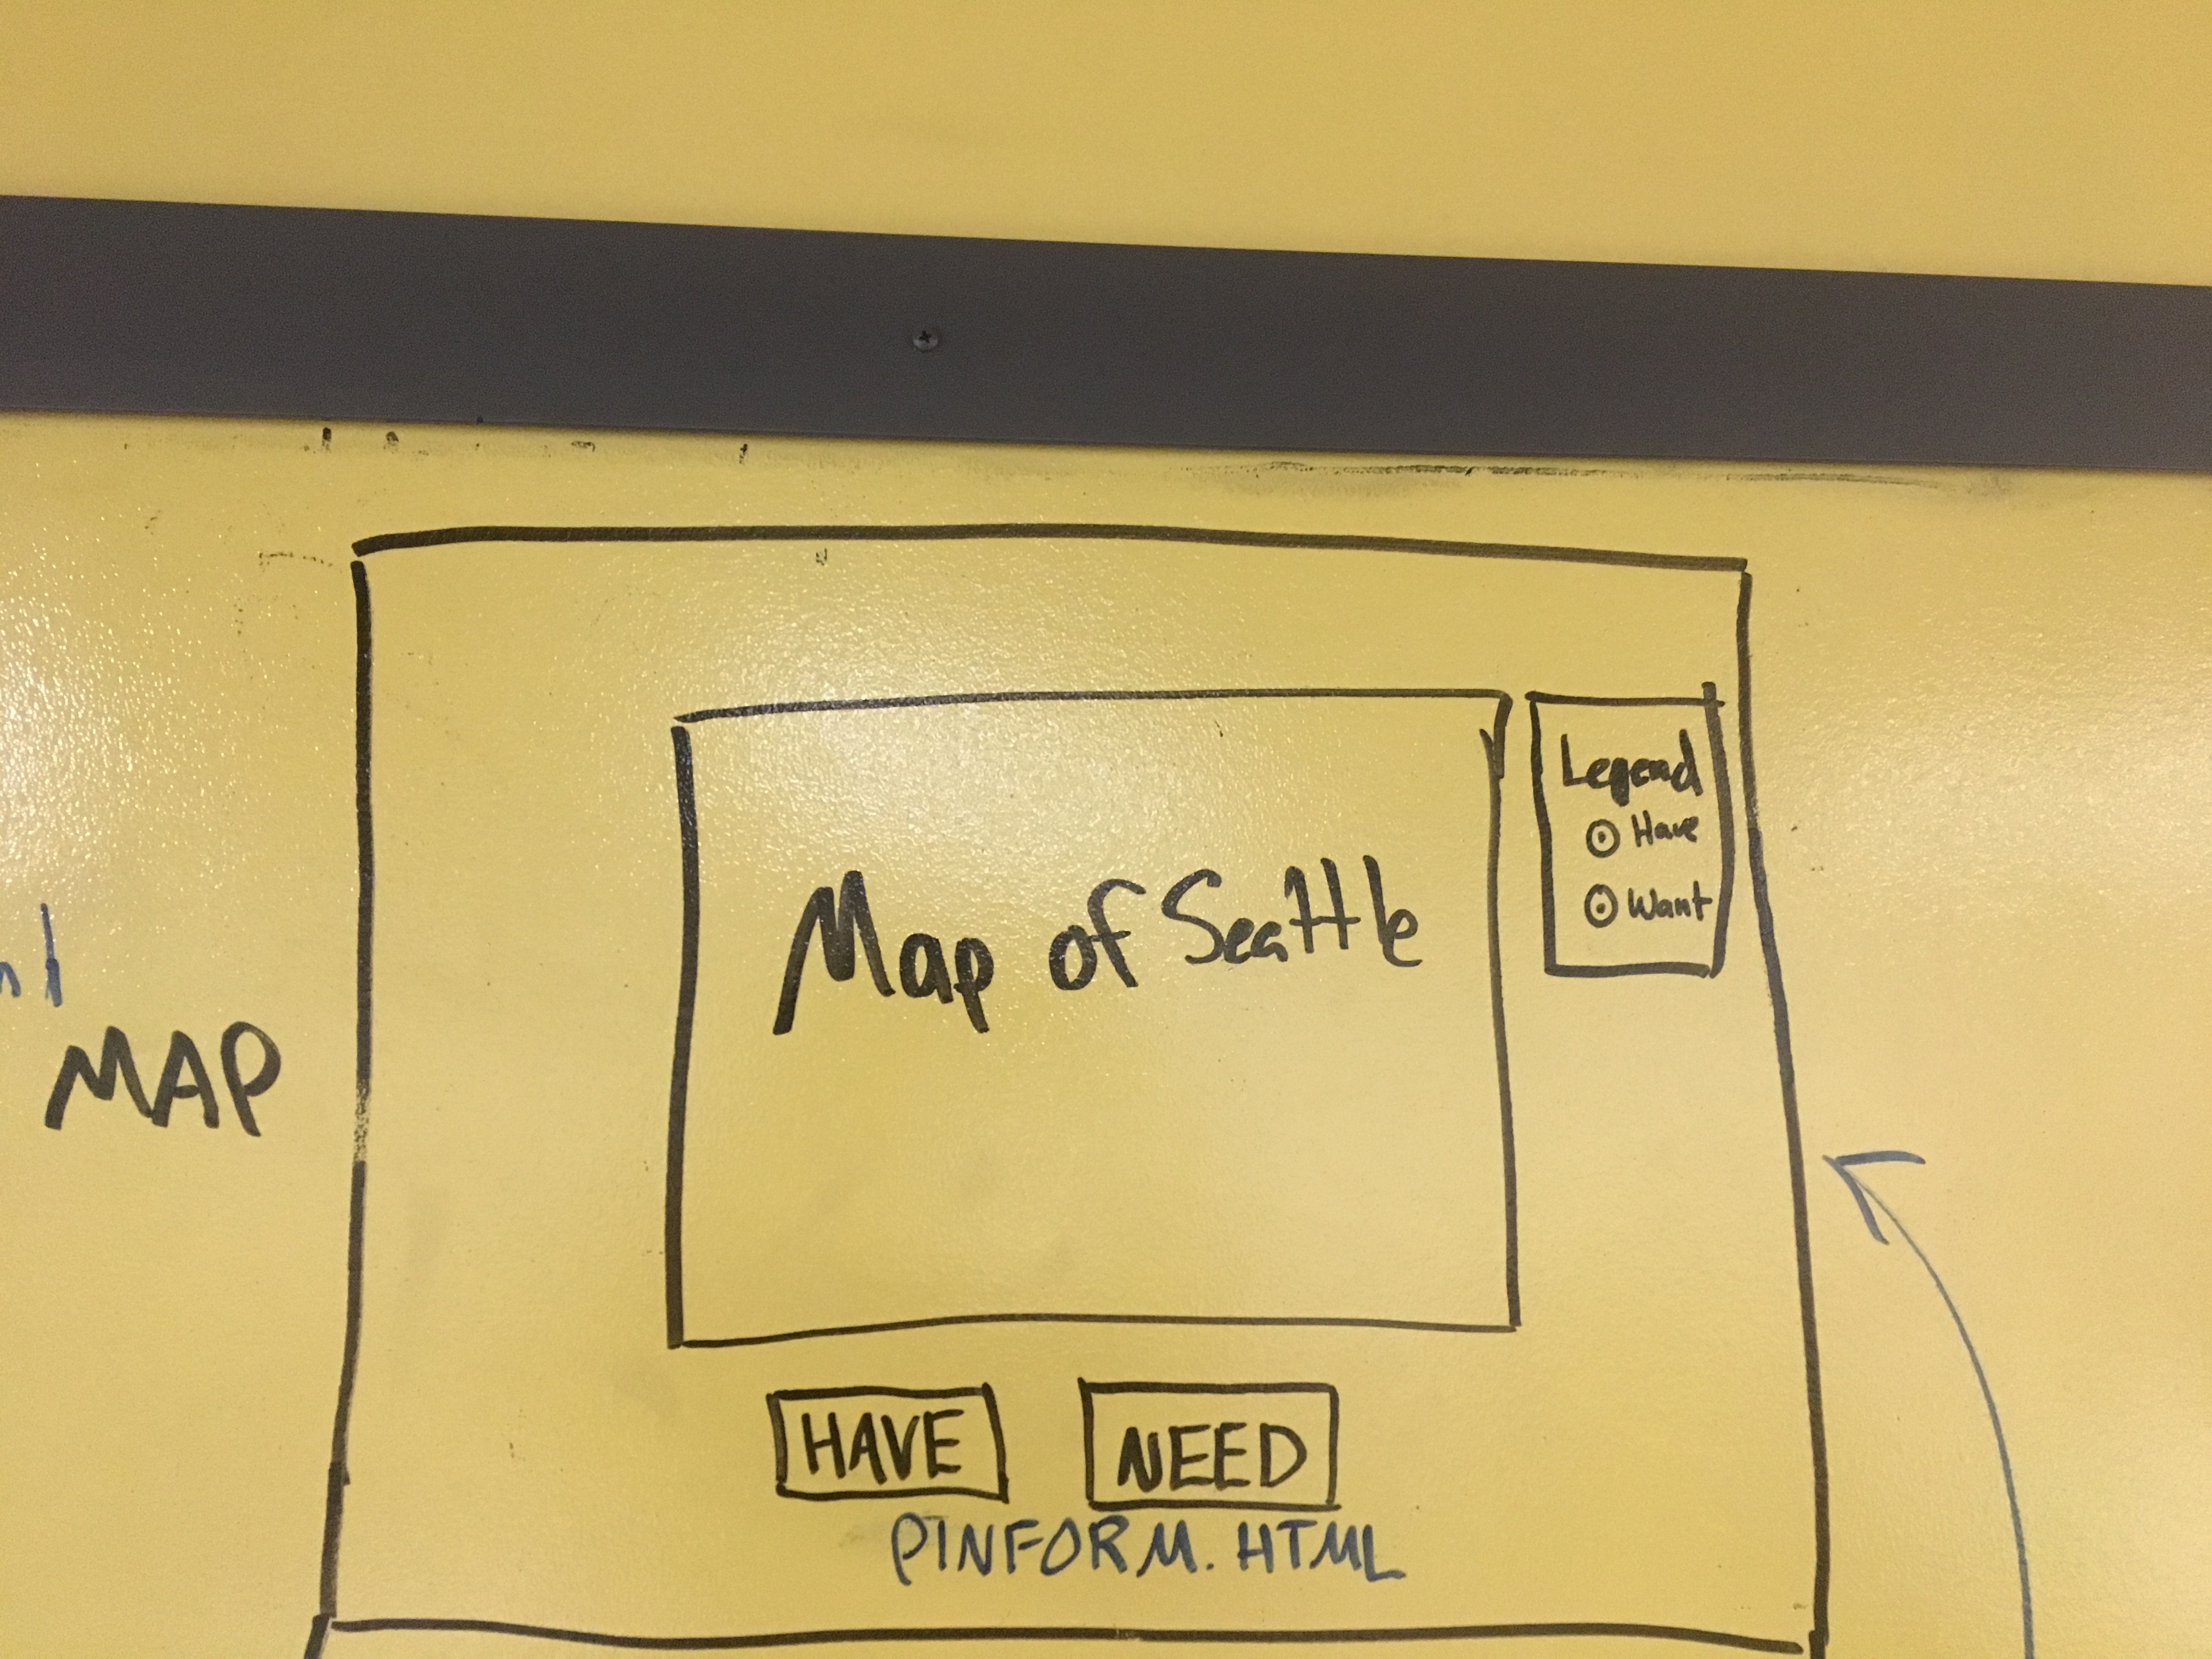 MAP
Map of Seattle
Legend
Have
Want
HAVE
NEED
PINFORM.HTML